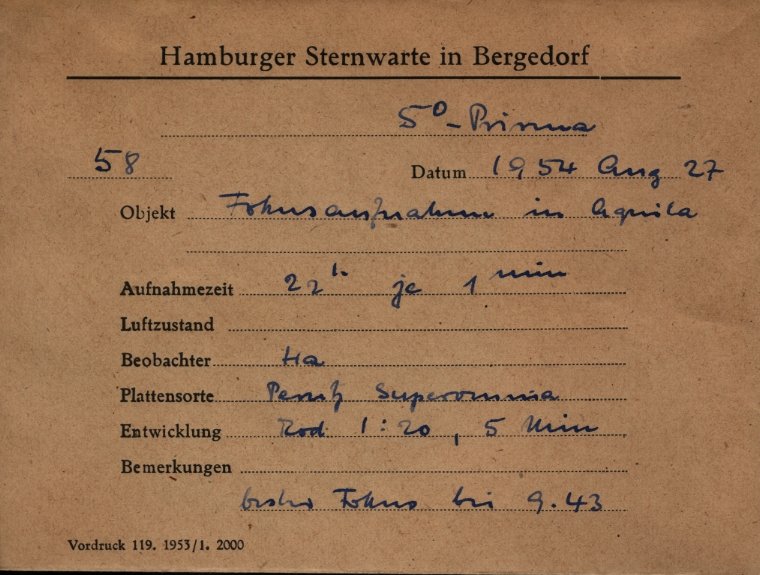 Hamburger Sternwarte in Bergedorf
5° - Prisma
58 Datum 1954 Aug 27
Objekt Fokusaufnahmen in Aquila
Aufnahmezeit 22h je 1 min
Luftzustand
Beobachter Ha
Plattensorte Perutz Superomnia
Entwicklung Rod. 1:20, 5 Min
Bemerkungen
bester Fokus bei 9.43
Vordruck 119. 1953/1. 2000